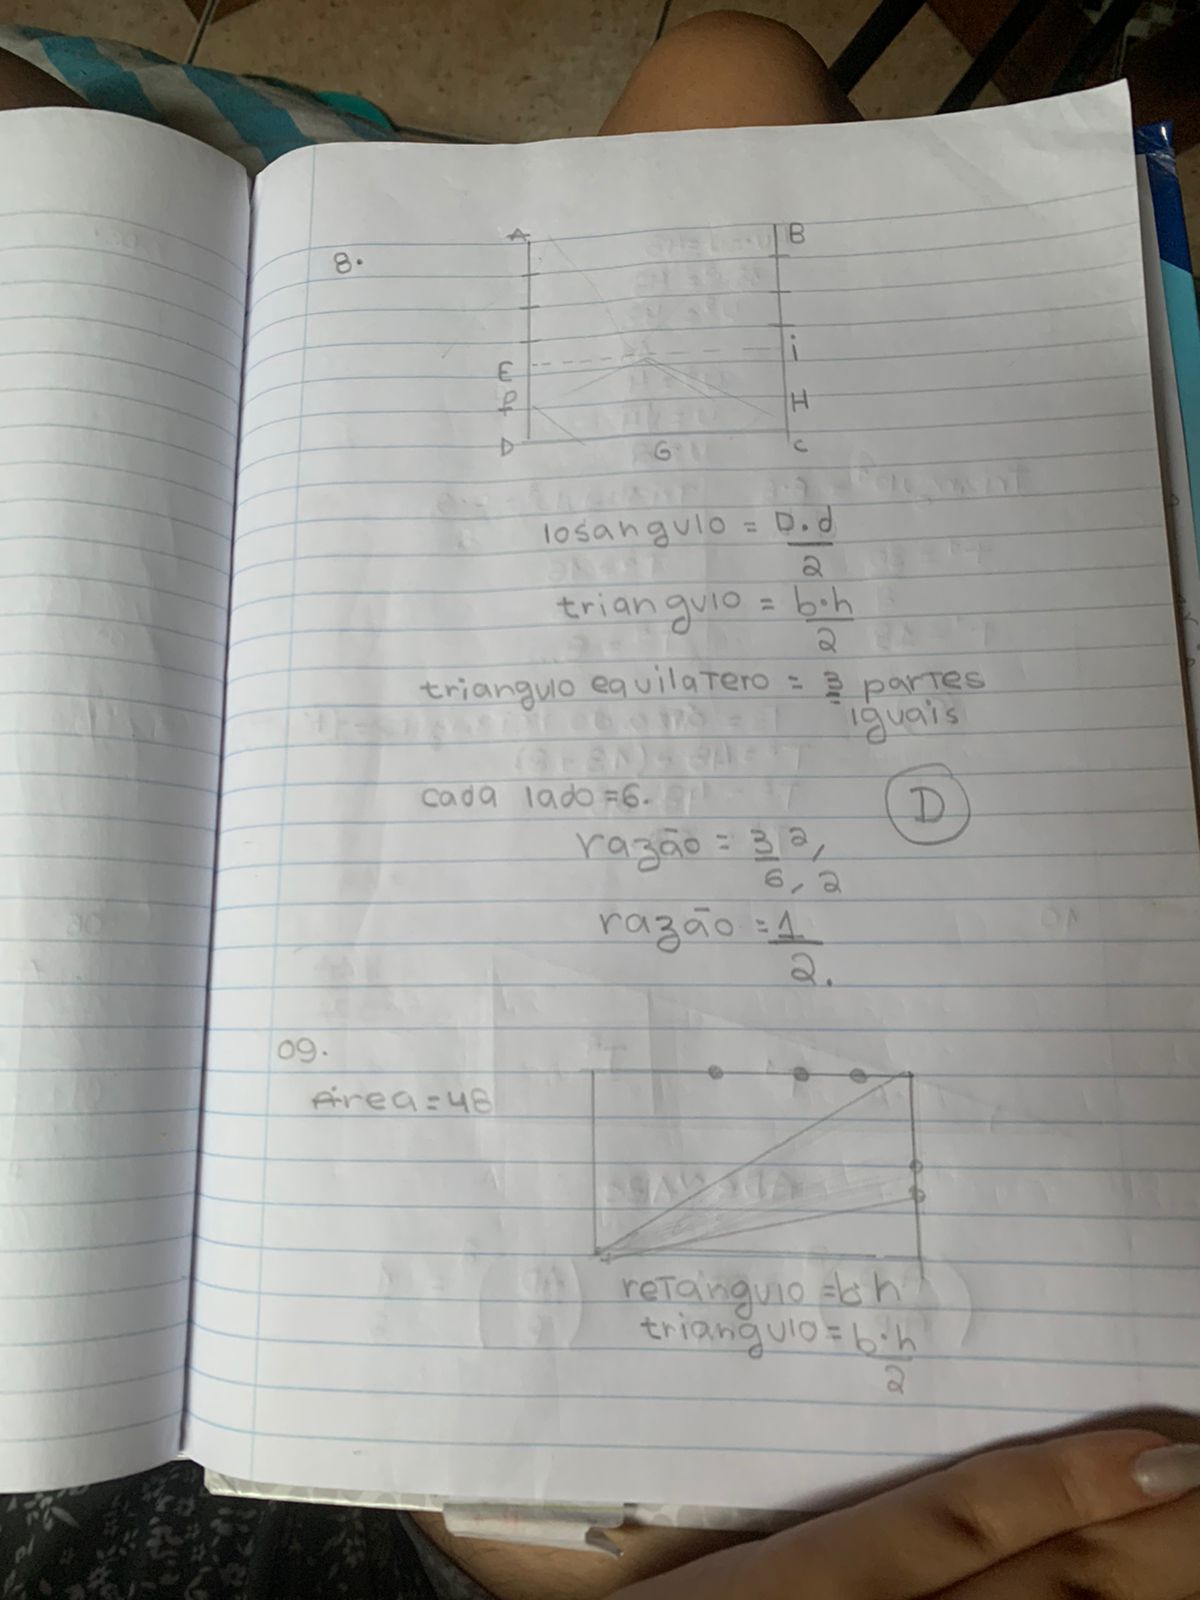 8.
A B
E i
F H
D G C
losangulo = D.d
2
triangulo = b.h
2
triangulo equilatero = 3 partes
iguais
cada lado = 6. D
razão = 3 2,
6, 2
razão = 1
2.
09.
Área = 48
retangulo = b.h
triangulo = b.h
2